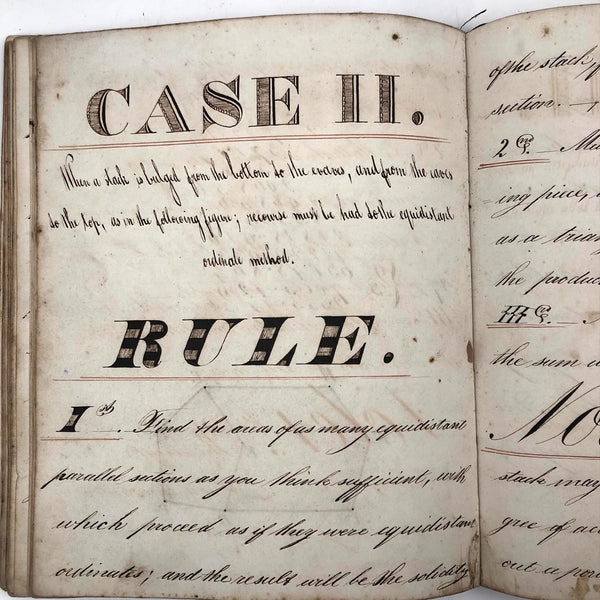 CASE II.
When a stack is bulged from the bottom to the evaves, and from the eaves
to the top, as in the following figure; recourse must be had to the equidistant
ordinate method.
RULE.
1st. Find the areas of as many equidistant
parallel sections as you think sufficient, with
which proceed as if they were equidistant
ordinates; and the result will be the solidity
of the stack,
section.
2
ing piece,
as a
the
III
the sum
No
stack may
gree of
out a